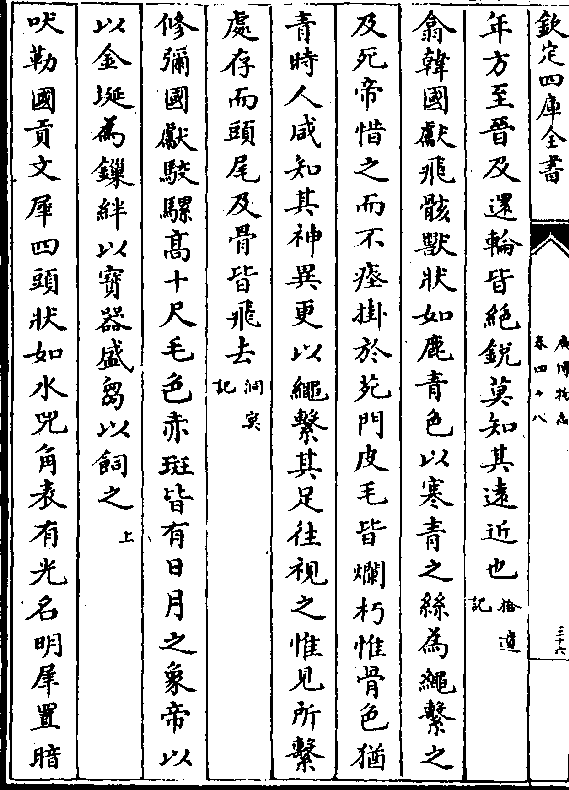 欽定四庫全書
廣博物志
卷四十八
三十六
年方至晉及還輪皆絶鋭莫知其遠近也拾遺記
翕韓國獻飛骸獸狀如鹿青色以寒青之絲為繩繫之
及死帝惜之而不瘞掛於苑門皮毛皆爛朽惟骨色猶
青時人咸知其神異更以繩繫其足往視之惟見所繫
處存而頭尾及骨皆飛去洞冥記
修彌國獻駮騾髙十尺毛色赤斑皆有日月之象帝以
以金埏為鏁絆以寶器盛芻以飼之上
吠勒國貢文犀四頭狀如水兕角表有光名明犀置暗